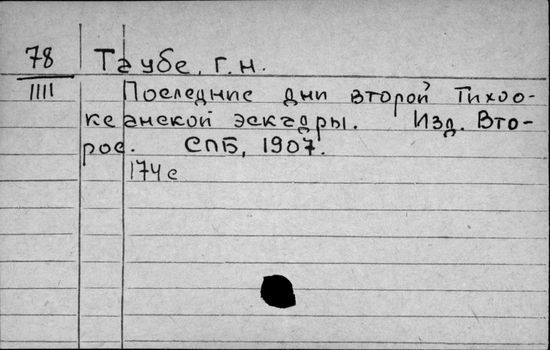 78 Таубе, Г.Н.
1111 Последние дни второй Тихоо-
кеанской эскадры. Изд. Вто-
рое. СПБ, 1907.
174 с